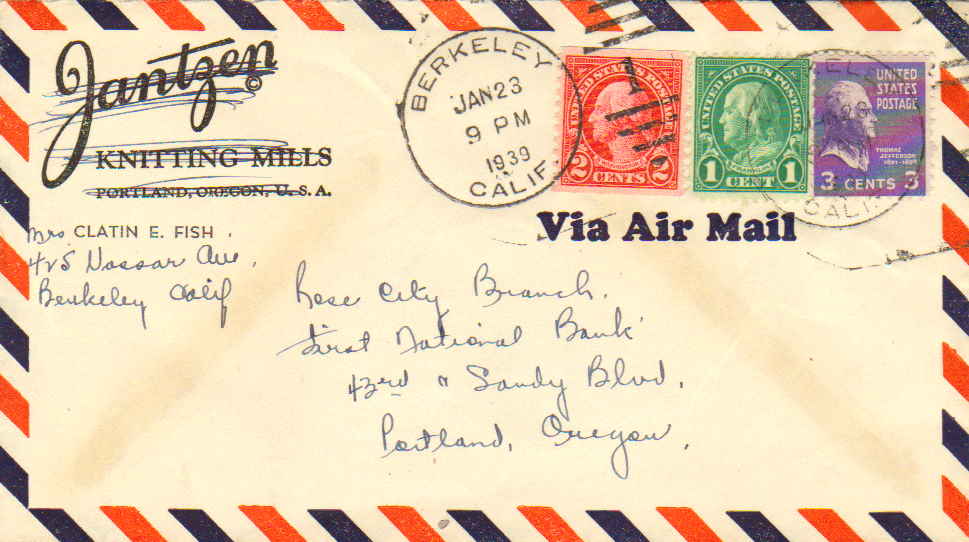 Jantzen
©
KNITTING MILLS
PORTLAND, OREGON, U. S. A.
Mrs. CLATIN E. FISH.
Berkeley Calif
BERKELEY
JAN 23
9 PM
1939
CALIF.
UNITED STATES POSTAGE
2 CENTS 2
UNITED STATES POSTAGE
1 CENT 1
UNITED
STATES
POSTAGE
THOMAS
JEFFERSON
3 CENTS 3
CALIF
Via Air Mail
Rose City Branch.
First National Bank
43rd & Sandy Blvd.
Portland, Oregon.